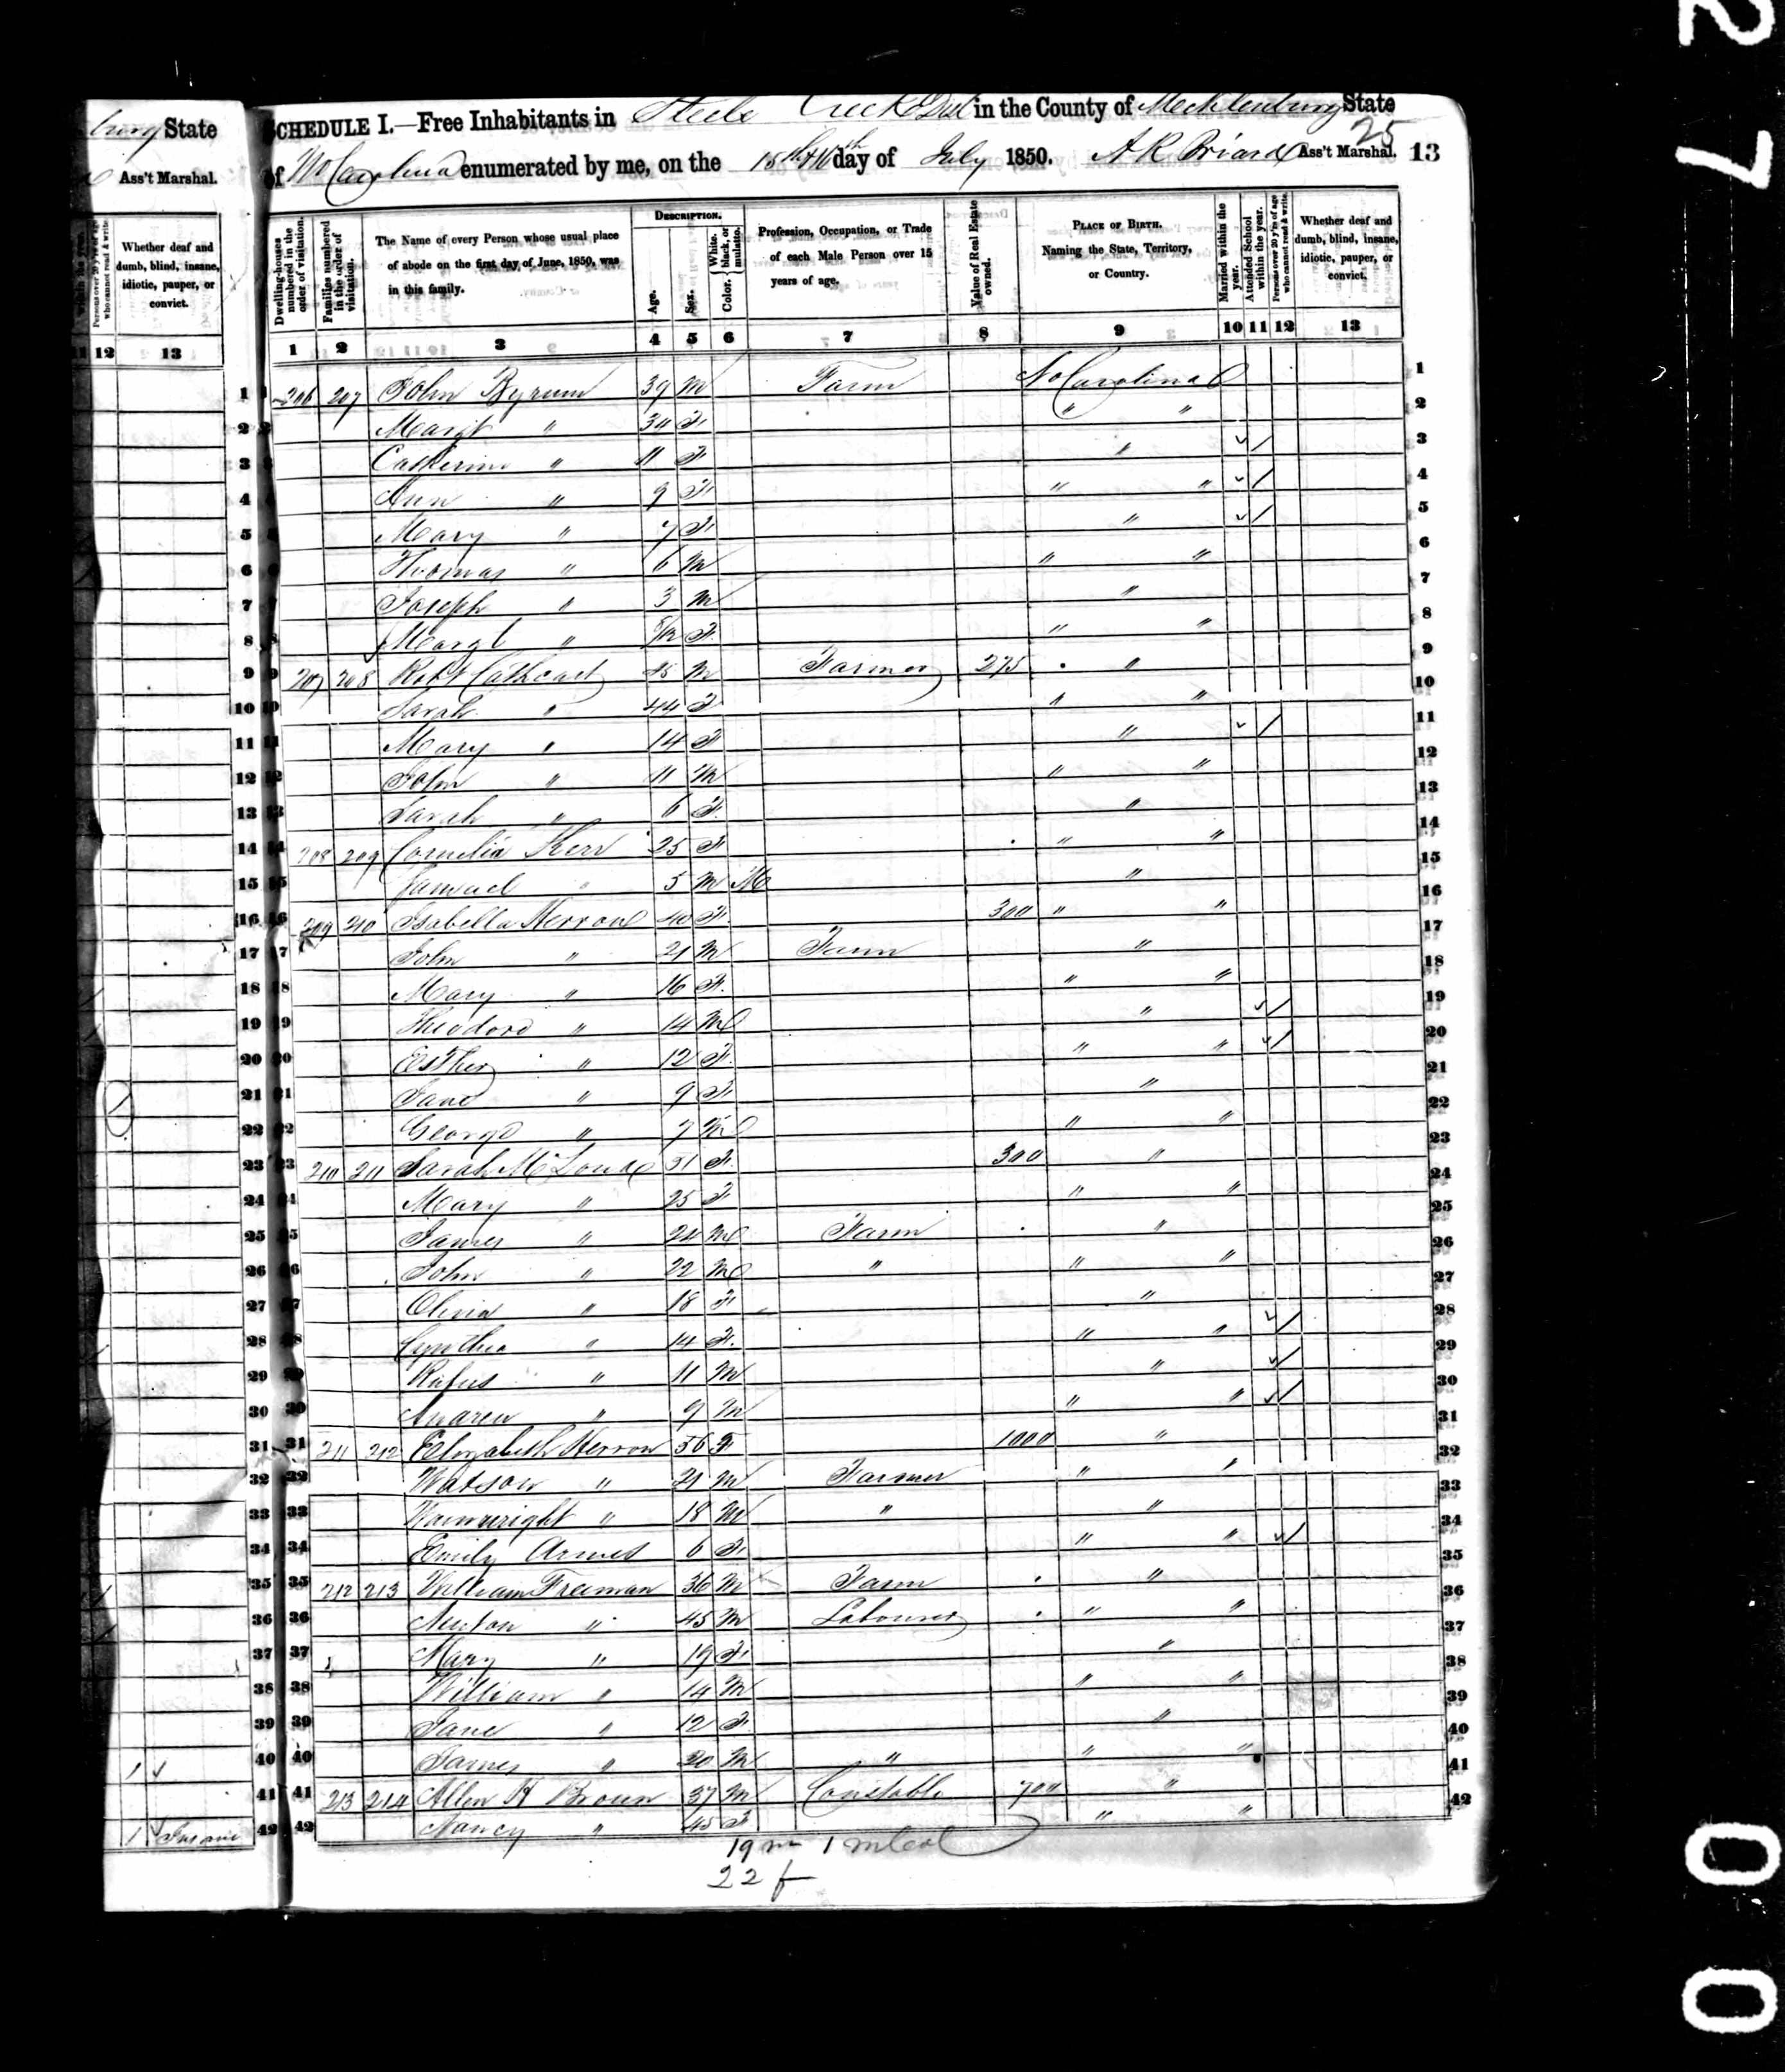 burg State
Ass't Marshal.
Whether deaf and dumb, blind, insane, idiotic, pauper, or convict.
11 12 13
Insane
SCHEDULE I.—Free Inhabitants in Steele Creek Dist in the County of Mecklenburg State
of No Carolina enumerated by me, on the day of July 1850. Ass't Marshal. 13
25
Dwelling-houses numbered in the order of visitation.
Families numbered in the order of visitation.
The Name of every Person whose usual place of abode on the first day of June, 1850, was in this family.
DESCRIPTION.
Age.
Sex.
Color. White, black, or mulatto.
Profession, Occupation, or Trade of each Male Person over 15 years of age.
Value of Real Estate owned.
PLACE OF BIRTH. Naming the State, Territory, or Country.
Married within the year.
Attended School within the year.
Persons over 20 y'rs of age who cannot read & write.
Whether deaf and dumb, blind, insane, idiotic, pauper, or convict.
1 2 3 4 5 6 7 8 9 10 11 12 13
1 206 207 John Byrum 39 M Farm No Carolina 1
2 " F " " 2
3 Catherine " 11 F " 3
4 Ann " 9 F " " 4
5 Mary " 7 F " 5
6 Thomas " 6 M " " 6
7 Joseph " 3 M " 7
8 Margt " F " " 8
9 207 208 Robt Cathcart 45 M Farmer 275 " 9
10 Sarah " 44 F " " 10
11 Mary " 14 F " 11
12 John " 11 M " " 12
13 Sarah " 6 F " 13
14 208 209 Cornelia Kerr 25 F " " 14
15 " 5 M M " 15
16 209 210 Isabella Herron 40 F 300 " " 16
17 John " 21 M Farm " 17
18 Mary " 16 F " " 18
19 Theodore " 14 M " 19
20 Esther " 12 F " " 20
21 Jane " 9 F " 21
22 George " 7 M " " 22
23 210 211 Sarah 51 F 300 " 23
24 Mary " 25 F " " 24
25 James " 24 M Farm " 25
26 John " 22 M " " " 26
27 Olivia " 18 F " 27
28 Cynthia " 14 F " " 28
29 Rufus " 11 M " 29
30 Andrew " 9 M " " 30
31 211 212 Elizabeth Herron 56 F 1000 " 31
32 Watson " 21 M Farmer " " 32
33 Wainwright " 18 M " " 33
34 Emily 6 F " " 34
35 212 213 William Freeman 36 M Farm " 35
36 " 45 M Labourer " " 36
37 Mary " 19 F " 37
38 William " 14 M " " 38
39 Jane " 12 F " 39
40 James " 20 M " " " 40
41 213 214 Allen H Brown 37 M Constable 700 " 41
42 Nancy " 45 F " " 42
19 m 1 m Col
22 f
2
7
0
0